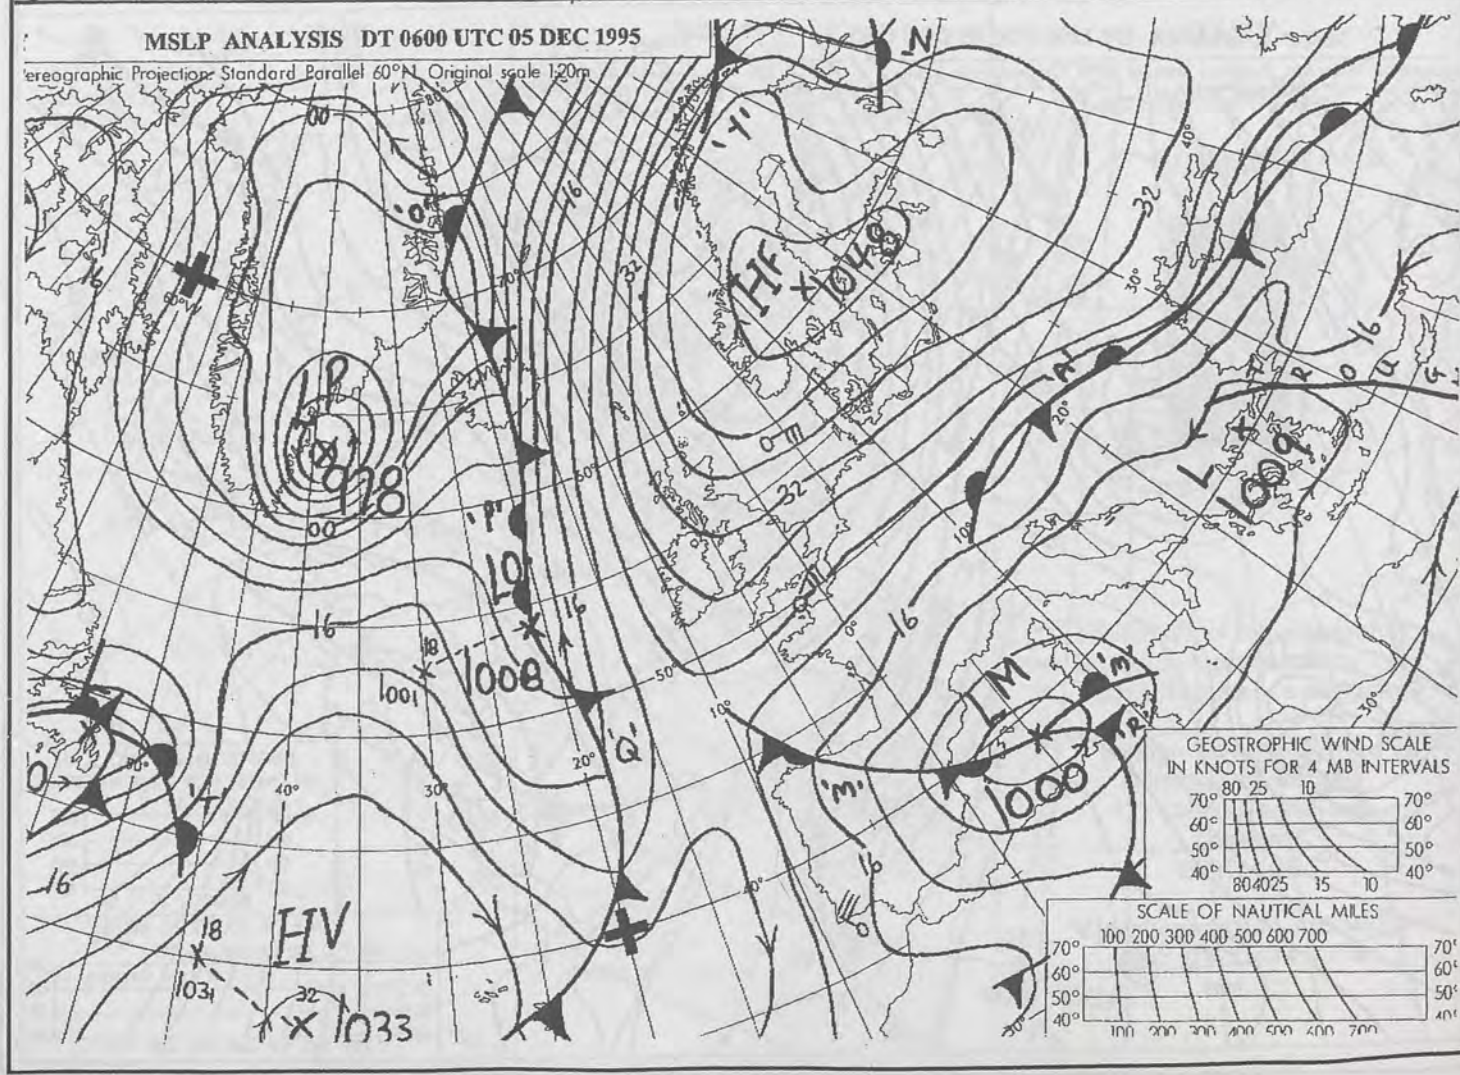 MSLP ANALYSIS DT 0600 UTC 05 DEC 1995
ereographic Projection: Standard Parallel 60°N Original scale 1:20m
N
'Y'
00
80°
40°
16
32
'O'
16
32
HF
X1048
70°
30°
60°W
16
LP
978
'A'
20°
T R O U G
L
1009
32
60°
'P'
00
LO
1008
16
10°
16
18
1001
16
0°
50°
10°
LM
'M'
'R'
1000
'M'
30°
'Q'
20°
'T'
40°
30°
50°
16
16
40°
HV
18
1031
32
1033
GEOSTROPHIC WIND SCALE
IN KNOTS FOR 4 MB INTERVALS
80 25 10
70° 70°
60° 60°
50° 50°
40° 40°
80 40 25 15 10
SCALE OF NAUTICAL MILES
100 200 300 400 500 600 700
70° 70°
60° 60°
50° 50°
40° 40°
100 200 300 400 500 600 700